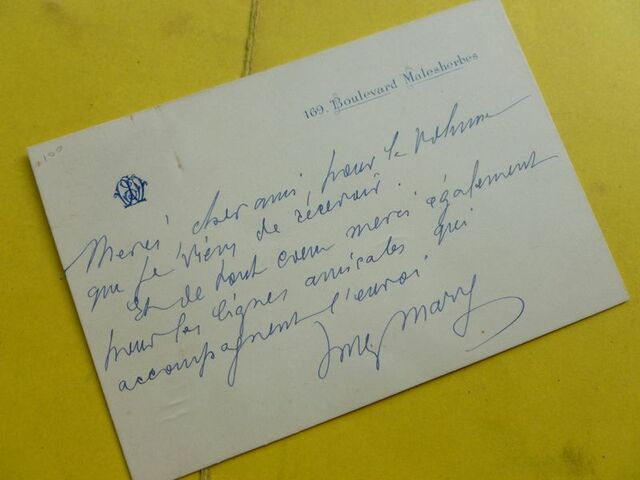 169, Boulevard Malesherbes
100
Merci cher ami, pour le volume
que je viens de recevoir.
Et de tout coeur merci également
pour les lignes amicales qui
accompagnent l'envoi.
Mary